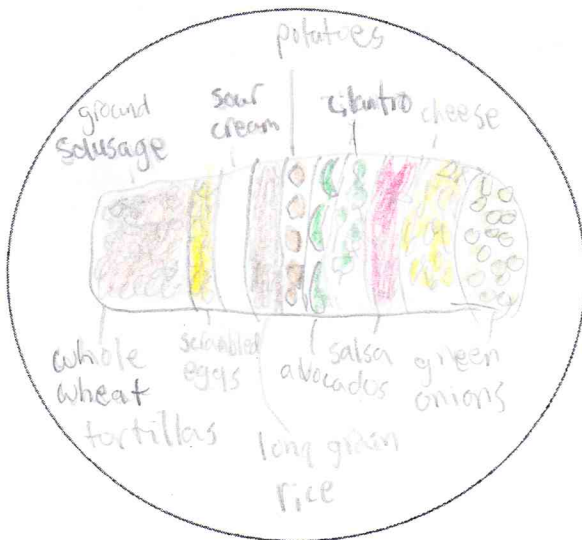 potatoes
ground
solusage
sour
cream
cilantro
cheese
whole
wheat
tortillas
scrambled
eggs
long grain
rice
avocados
salsa
green
onions